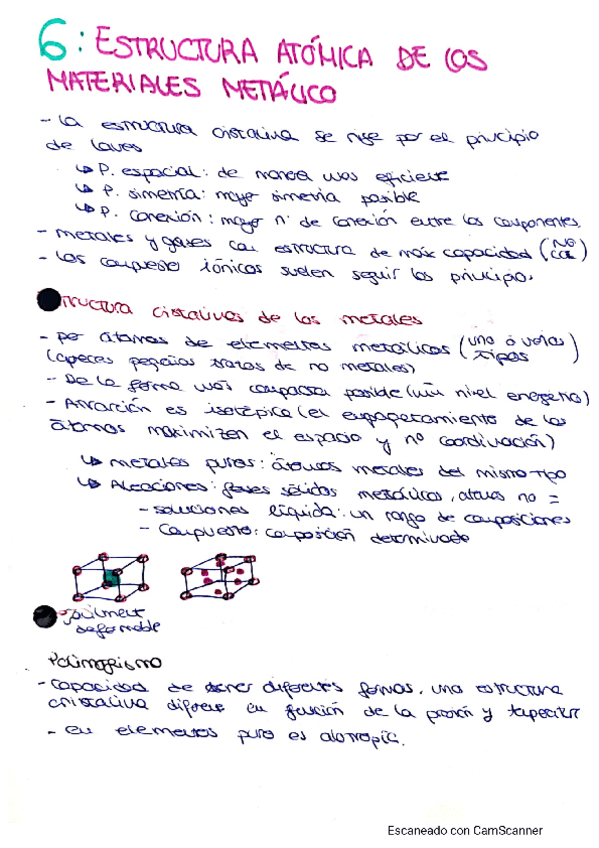 6: ESTRUCTURA ATÓMICA DE LOS
MATERIALES METÁLICO
- La estructura cristalina se rige por el principio
de Laves
↳ P. espacial: de manera mas eficiente
↳ P. simetría: mayor simetría posible
↳ P. conexión: mayor nº de conexión entre los componentes.
- Metales y gases con estructura de máx capacidad (
- Los compuestos iónicos suelen seguir los principios
tructura cristalinas de los metales
- por átomos de elementos metálicos (uno o varios
tipos)
(a veces pequeñas trazas de no metales)
- De la forma mas compacta posible (mín nivel energético)
- Atracción es isotópica (el empaquetamiento de los
átomos maximizen el espacio y nº coordinación)
↳ Metales puros: átomos metales del mismo tipo
↳ Aleaciones: fases sólidos metálicos, atomos no =
- soluciones líquida: un rango de composiciones
- Compuesto: composición determinada
facilment
deformable
Polimorfismo
- Capacidad de tener diferentes formas, una estructura
cristalina difiere en función de la presión y
- en elementos puro es alotropía.
Escaneado con CamScanner